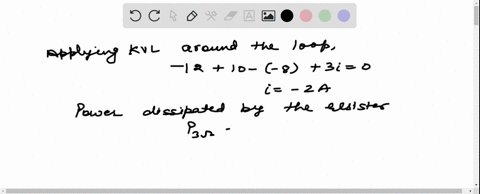 Applying KVL around the loop,
-12 + 10 - (-8) + 3i = 0
i = -2A
Power dissipated by the resistor
P3Ω -